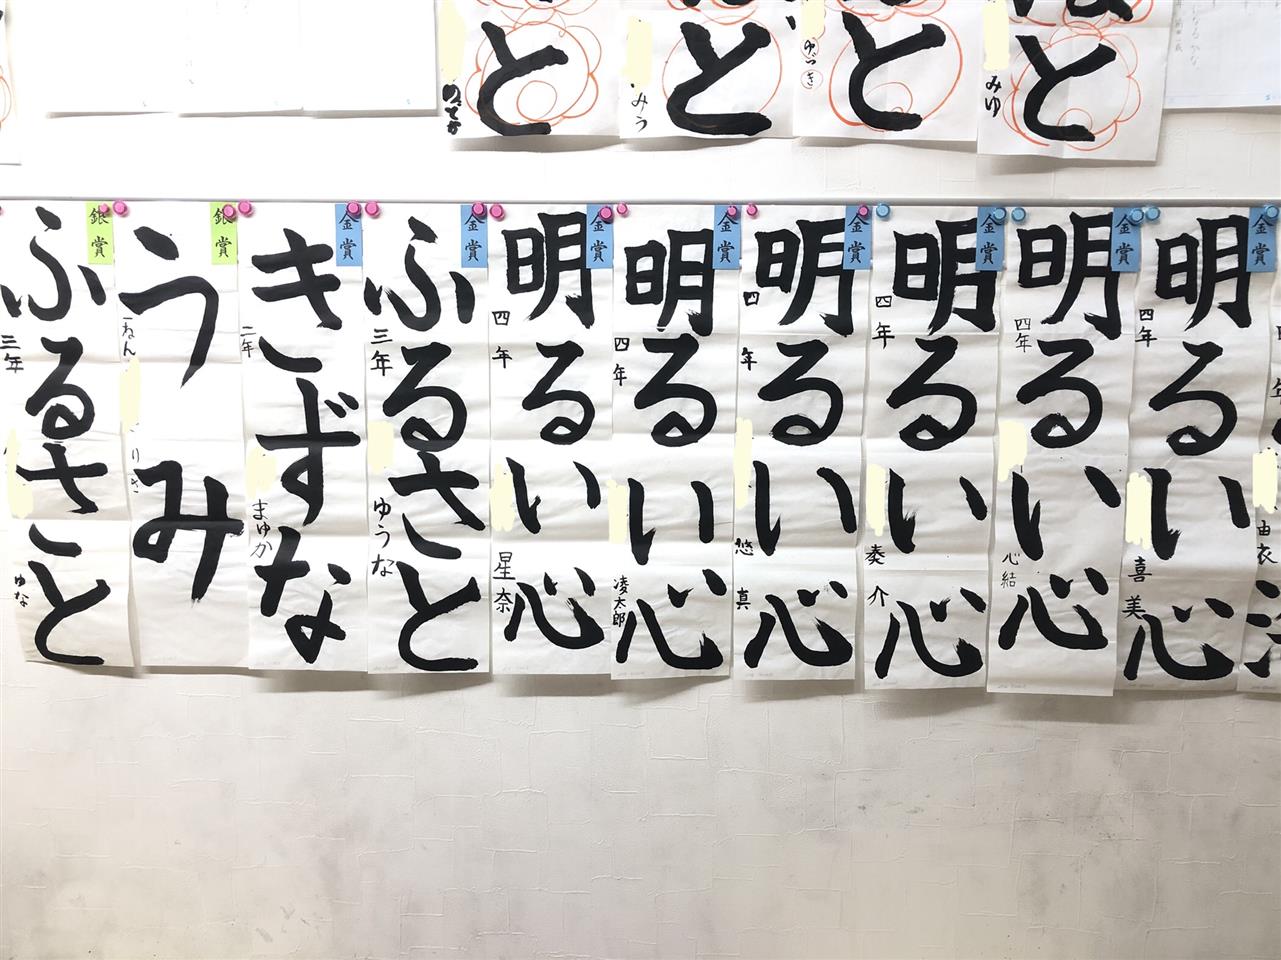 と
と
みう
と
ゆづき
と
みゆ
金賞
明るい心
四年
喜美
金賞
明るい心
四年
心結
金賞
明るい心
四年
奏介
金賞
明るい心
四年
悠真
金賞
明るい心
四年
凌太郎
金賞
明るい心
四年
星奈
金賞
ふるさと
三年
ゆうな
金賞
きずな
二年
まゆか
銀賞
うみ
一ねん
りさ
銀賞
ふるさと
三年
ゆな
由衣